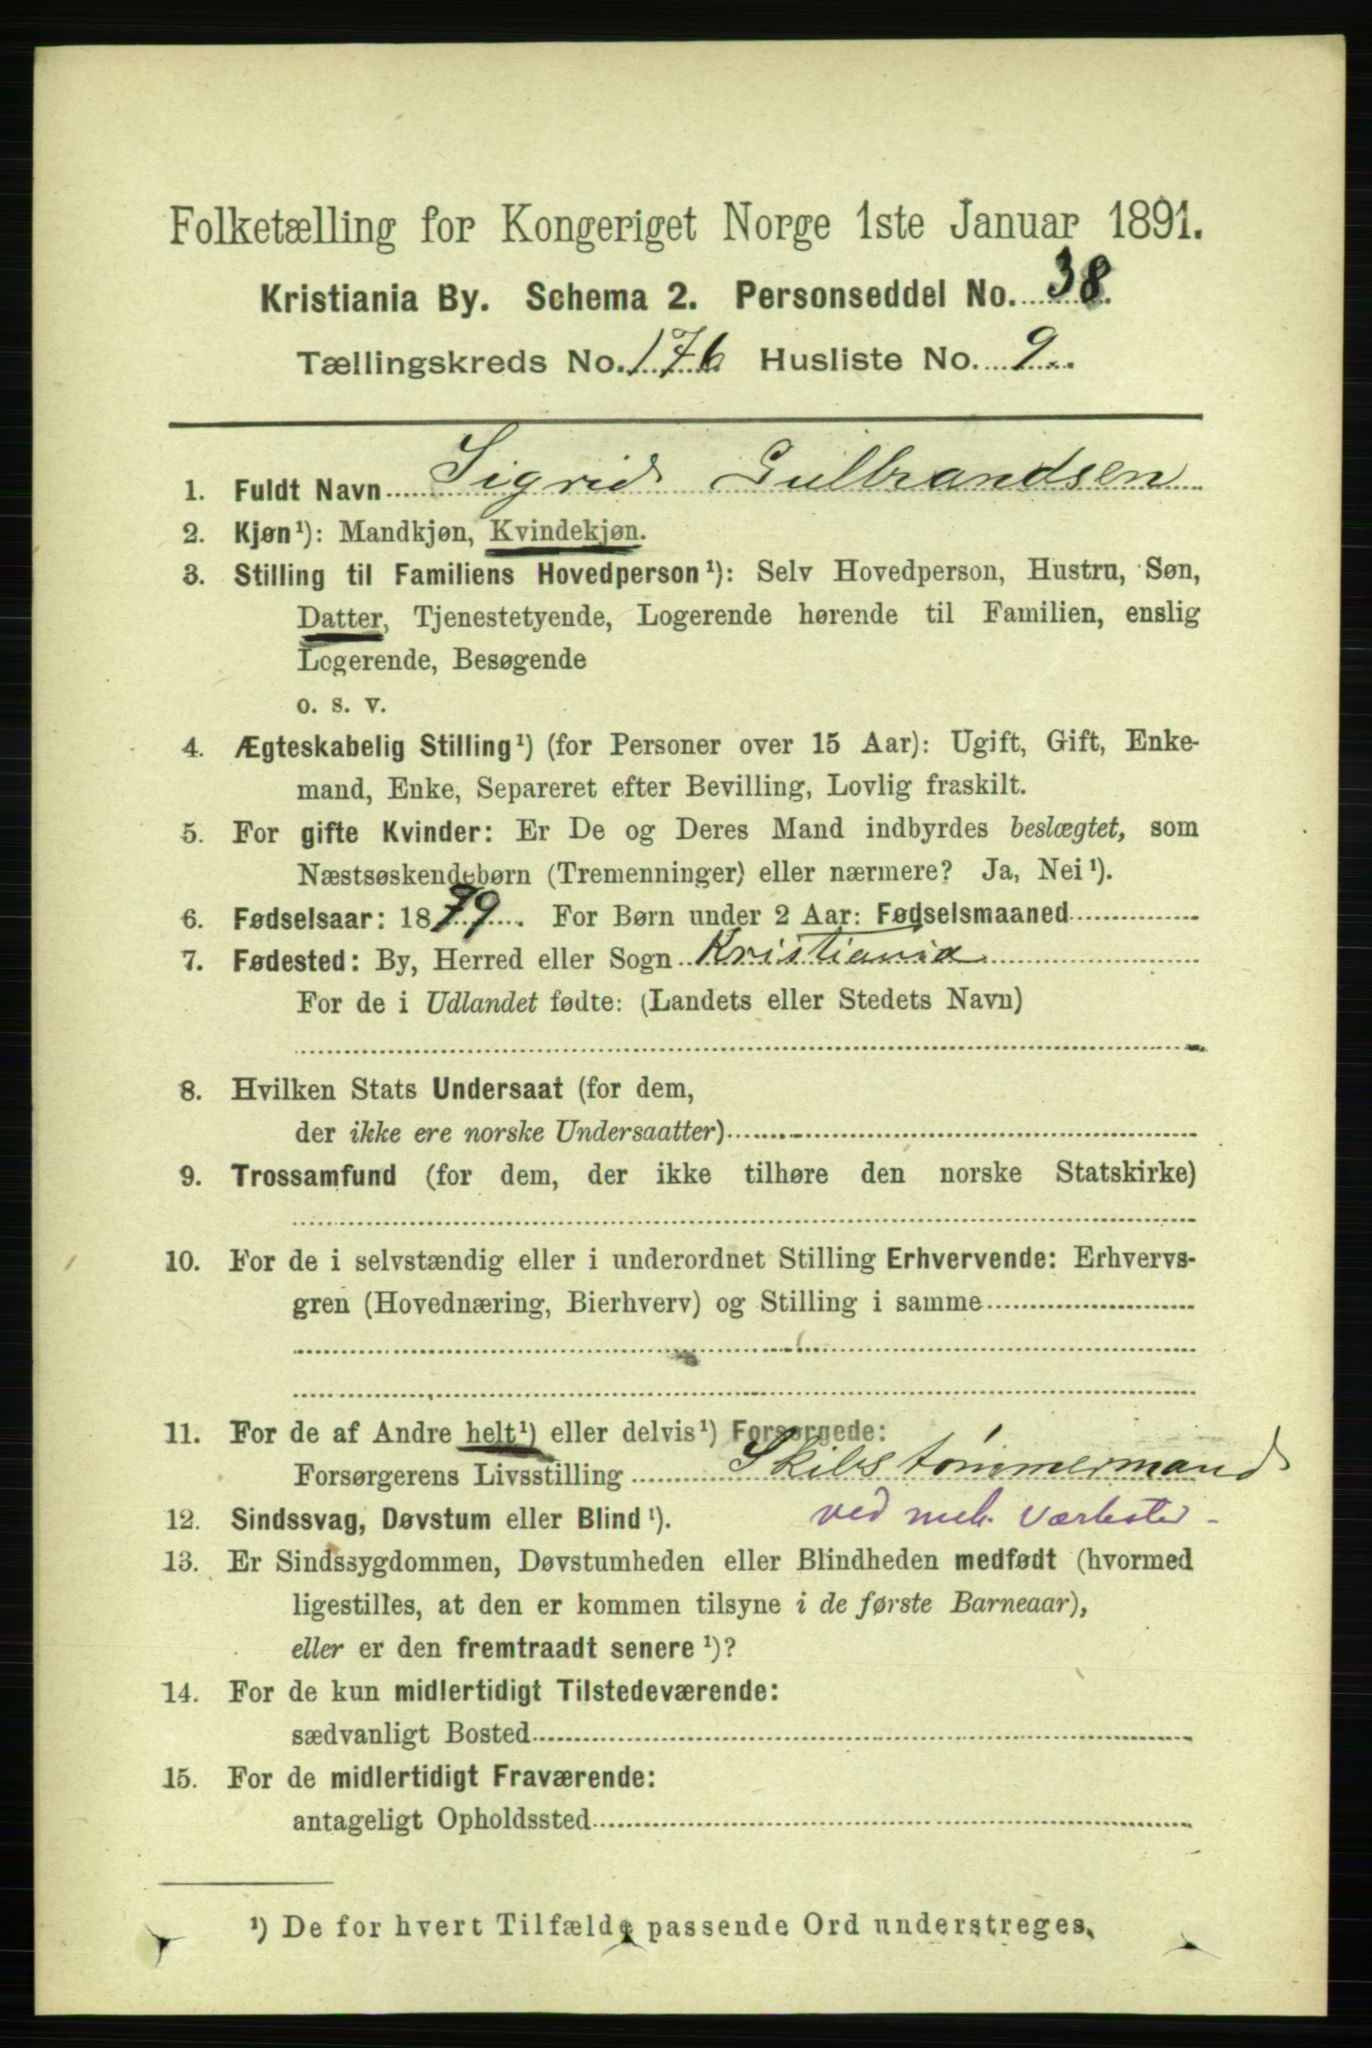 Folketælling for Kongeriget Norge 1ste Januar 1891.
Kristiania By. Schema 2. Personseddel No. 38.
Tællingskreds No. 176 Husliste No. 9
1. Fuldt Navn Sigrid Gulbrandsen
2. Kjøn¹): Mandkjøn, Kvindekjøn.
3. Stilling til Familiens Hovedperson¹): Selv Hovedperson, Hustru, Søn,
Datter, Tjenestetyende, Logerende hørende til Familien, enslig
Logerende, Besøgende
o. s. v.
4. Ægteskabelig Stilling¹) (for Personer over 15 Aar): Ugift, Gift, Enke-
mand, Enke, Separeret efter Bevilling, Lovlig fraskilt.
5. For gifte Kvinder: Er De og Deres Mand indbyrdes beslægtet, som
Næstsøskendebørn (Tremenninger) eller nærmere? Ja, Nei¹).
6. Fødselsaar: 1879. For Børn under 2 Aar: Fødselsmaaned
7. Fødested: By, Herred eller Sogn Kristiania
For de i Udlandet fødte: (Landets eller Stedets Navn)
8. Hvilken Stats Undersaat (for dem,
der ikke ere norske Undersaatter)
9. Trossamfund (for dem, der ikke tilhøre den norske Statskirke)
10. For de i selvstændig eller i underordnet Stilling Erhvervende: Erhvervs-
gren (Hovednæring, Bierhverv) og Stilling i samme
11. For de af Andre helt¹) eller delvis¹) Forsørgede:
Forsørgerens Livsstilling Skibstømmermand
12. Sindssvag, Døvstum eller Blind¹). ved mek. Værksted
13. Er Sindssygdommen, Døvstumheden eller Blindheden medfødt (hvormed
ligestilles, at den er kommen tilsyne i de første Barneaar),
eller er den fremtraadt senere¹)?
14. For de kun midlertidigt Tilstedeværende:
sædvanligt Bosted
15. For de midlertidigt Fraværende:
antageligt Opholdssted
¹) De for hvert Tilfælde passende Ord understreges.